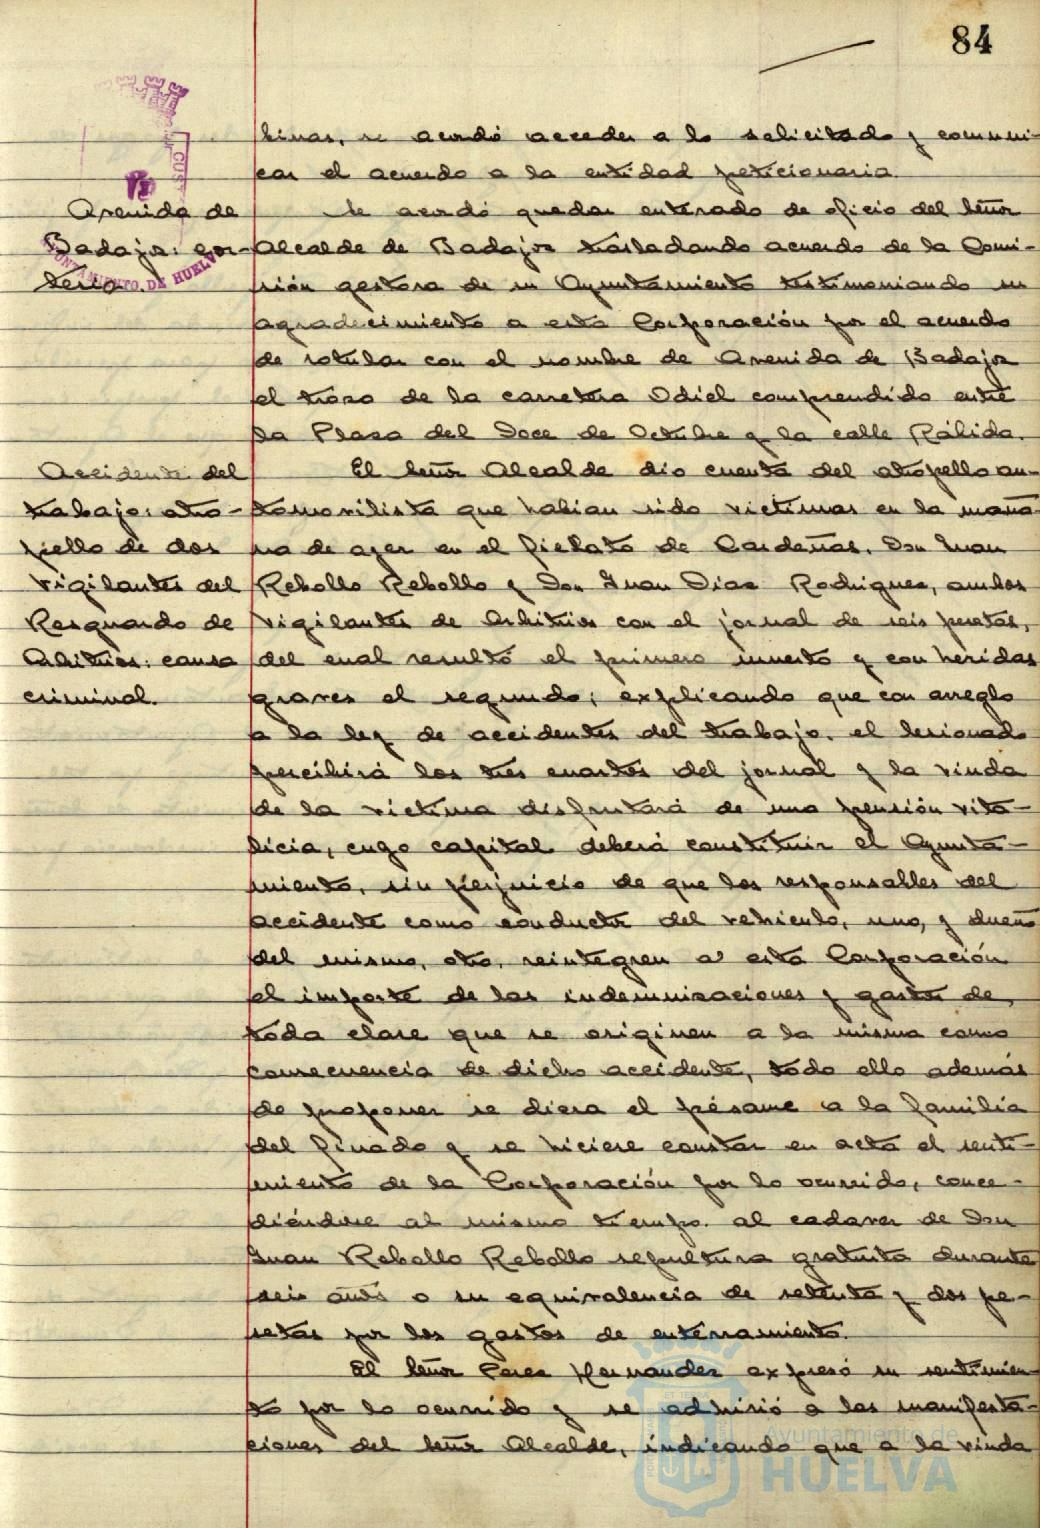 84
binas, se acordó acceder a lo solicitado y comuni-
car el acuerdo a la entidad peticionaria.
Avenida de
Badajoz: cor-
tesia.
AYUNTAMIENTO DE HUELVA
Se acordó quedar enterado de oficio del Señor
Alcalde de Badajoz trasladando acuerdo de la Comi-
sión gestora de su Ayuntamiento testimoniando su
agradecimiento a esta Corporación por el acuerdo
de rotular con el nombre de Avenida de Badajoz
el trozo de la carretera Odiel comprendido entre
la Plaza del Doce de Octubre y la calle Rábida.
Accidente del
trabajo: atro-
pello de dos
Vigilantes del
Resguardo de
Arbitrios: causa
criminal.
El Señor Alcalde dio cuenta del atropello au-
tomovilista que habian sido victimas en la maña-
na de ayer en el fielato de Cardeñas, Don Juan
Rebollo Rebollo y Don Juan Diaz Rodriguez, ambos
Vigilantes de Arbitrios con el jornal de seis pesetas,
del cual resultó el primero muerto y con heridas
graves el segundo; explicando que con arreglo
a la ley de accidentes del trabajo, el lesionado
percibirá los tres cuartos del jornal y la viuda
de la victima disfrutará de una pensión vita-
licia, cuyo capital deberá constituir el Ayunta-
miento, sin perjuicio de que los responsables del
accidente como conductor del vehiculo, uno, y dueño
del mismo, otro, reintegren a esta Corporación
el importe de las indemnizaciones y gastos de
toda clase que se originen a la misma como
consecuencia de dicho accidente, todo ello además
de proponer se diera el pésame a la familia
del finado y se hiciese constar en acta el senti-
miento de la Corporación por lo ocurrido, conce-
diéndose al mismo tiempo al cadaver de Don
Juan Rebollo Rebollo sepultura gratuita durante
seis años o su equivalencia de setenta y dos pe-
setas por los gastos de enterramiento.
El Señor Perez Hernandez expresó su sentimien-
to por lo ocurrido y se adhirió a las manifesta-
ciones del Señor Alcalde, indicando que a la viuda
Ayuntamiento de
HUELVA